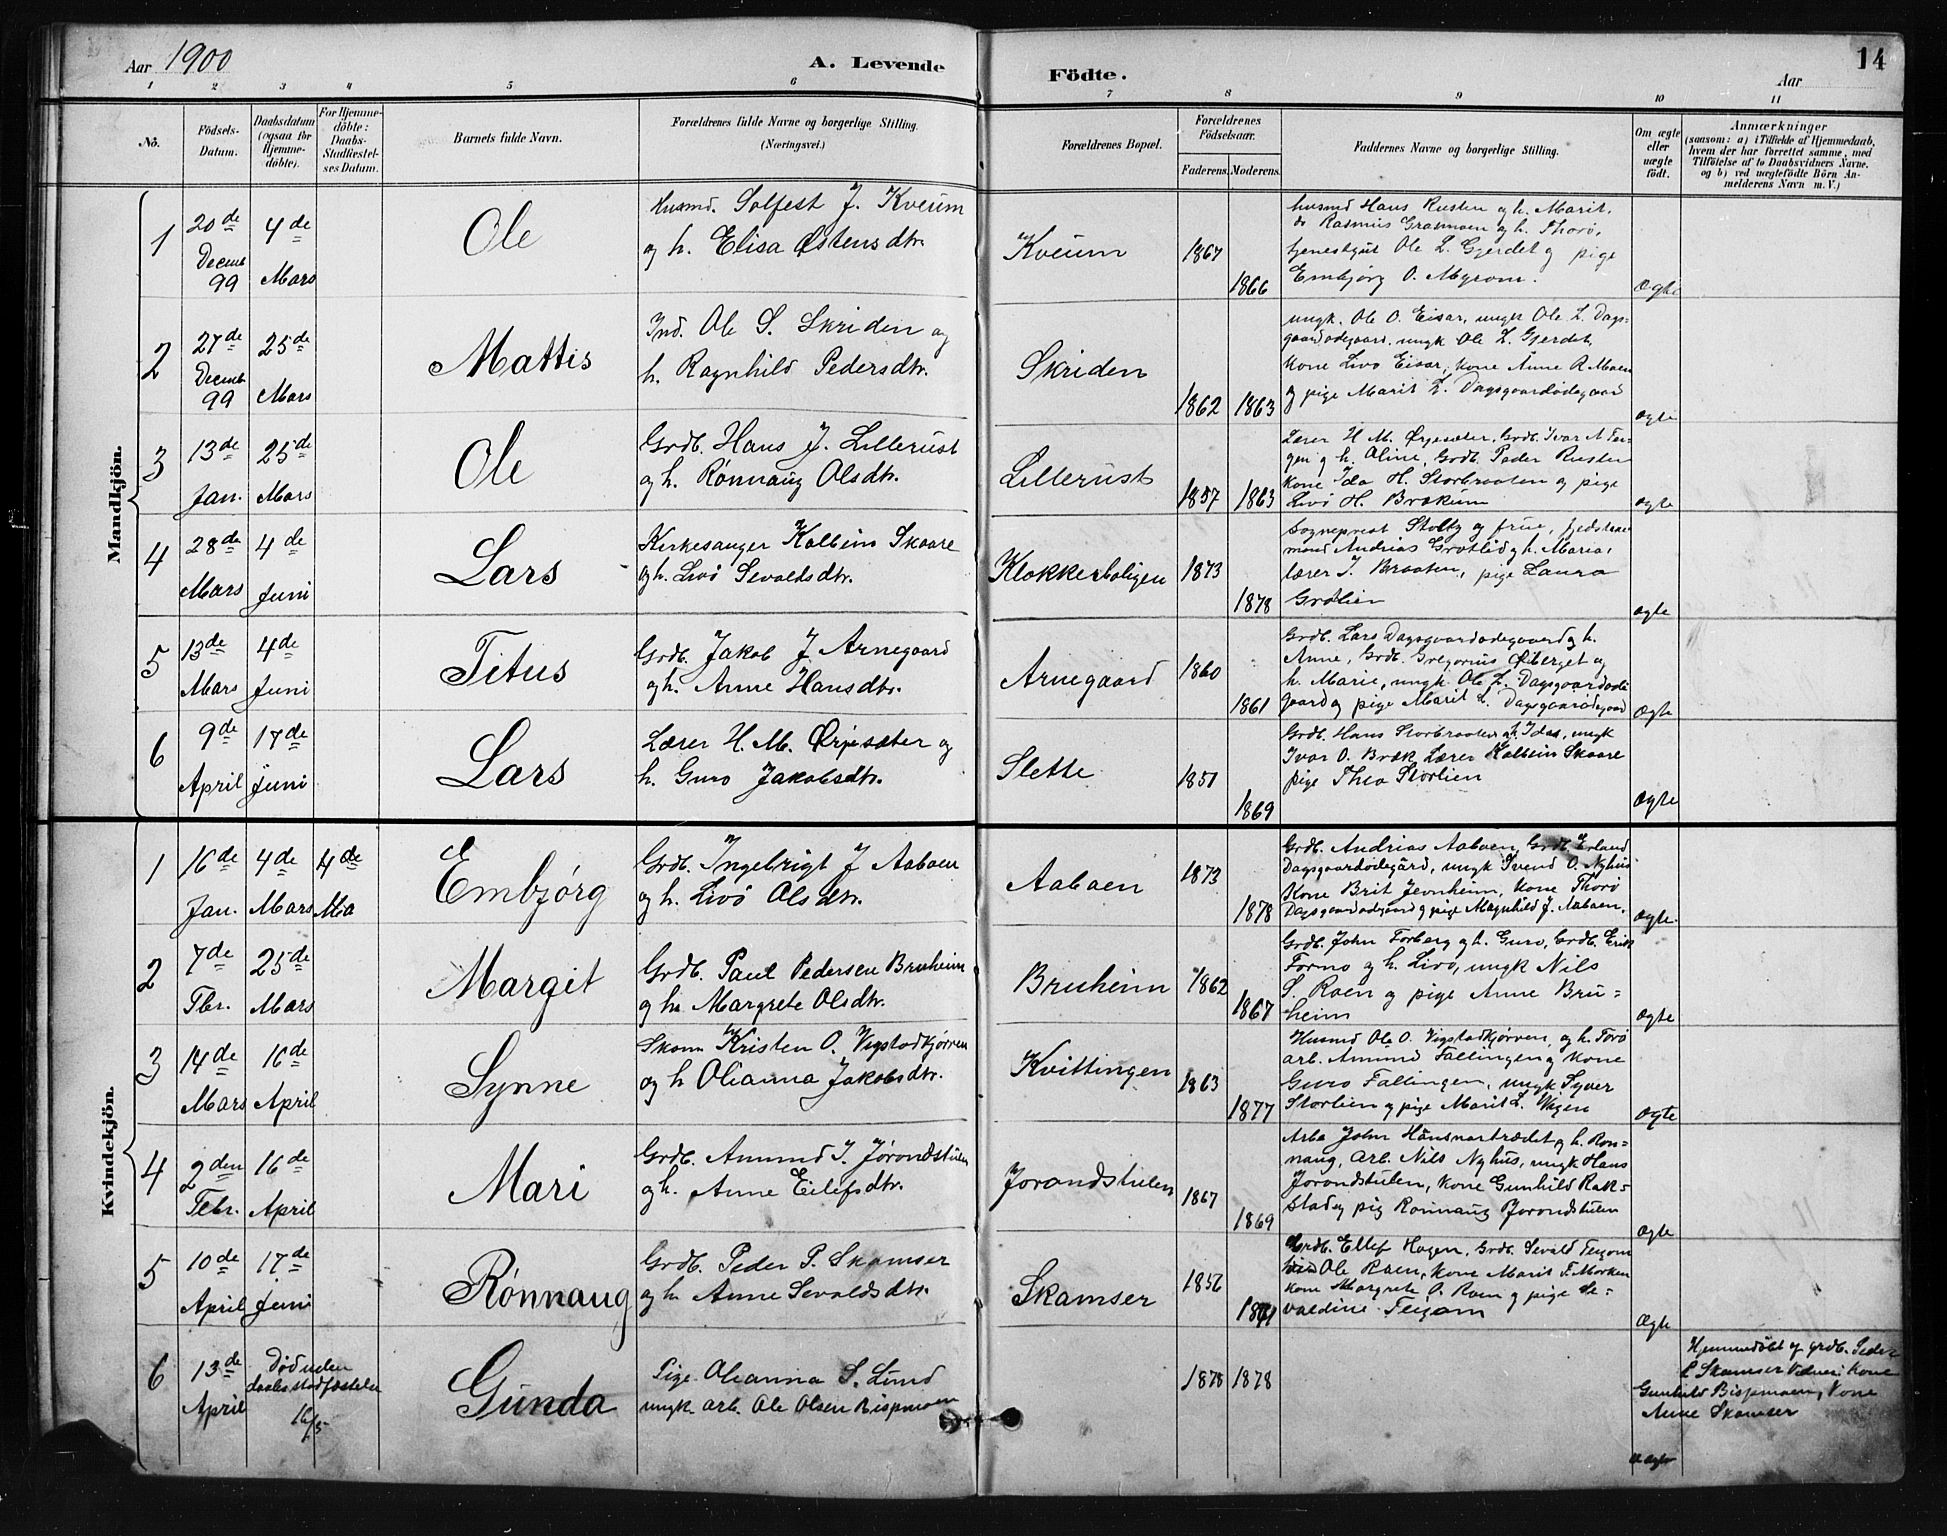 Aar 1900
A. Levende
Födte.
Aar
14
1 2 3 4 5 6 7 8 9 10 11
No.
Födsels-
Datum.
Daabsdatum
(ogsaa for
Hjemme-
döbte).
For Hjemme-
döbte:
Daabs-
Stadfæstel-
ses Datum.
Barnets fulde Navn.
Forældrenes fulde Navne og borgerlige Stilling.
(Næringsvei.)
Forældrenes Bopæl.
Forældrenes
Födselsaar.
Faderens. Moderens.
Faddernes Navne og borgerlige Stilling.
Om ægte
eller
uægte
födt.
Anmærkninger
(saasom: a) i Tilfælde af Hjemmedaab,
hvem der har forrettet samme, med
Tilföielse af to Daabsvidners Navne,
og b) ved uægtefödte Börn An-
melderens Navn m. V.)
Mandkjön.
1
20de
Decemb
99
4de
Mars
Ole
Husmd. Solfest J. Kveum
og h. Elisa Østensdtr.
Kveum
1867
1866
husmd Hans Rusten og h. Marit,
do Rasmus Gramoen og h. Thorø,
tjenestgut Ole L. Gjerdet og pige
Embjørg O. Myrom.
Ægte
2
27de
Decemb
99
25de
Mars
Mattis
Ind. Ole S. Skriden og
h. Ragnhild Pedersdtr.
Skriden
1862
1863
ungk. Ole O. Eisar, ungk Ole L. Dags-
gaardødegaard. ungk Ole L. Gjerdet,
Kone Livø Eisar, Kone Anne R Moen
og pige Marit L. Dagsgaardødegaard
ægte
3
13de
Jan.
25de
Mars
Ole
Grdb. Hans J. Lillerust
og h. Rønnaug Olsdtr.
Lillerust
1857
1863
Lærer H M. Ørjesæter, Grdb. Ivar A Ter-
gen og h. Oline, Grdb. Peder Rusten
Kone Ida H. Storbraaten og pige
Livø H. Brækum
ægte
4
28de
Mars
4de
Juni
Lars
Kirkesanger Kolbein Skaare
og h. Livø Sevaldsdtr.
Klokkerboligen
1873
1878
Sogneprest Stoltz og frue, fjedstue-
mand Andrias Grotlid og h. Maria,
lærer J. Braaten, pige Laura
Grotlien
ægte
5
13de
Mars
4de
Juni
Titus
Grdb. Jakob J Arnegaard
og h. Anne Hansdtr.
Arnegaard
1860
1861
Grdb. Lars Dagsgaardødegaard og h.
Anne, Grdb. Gregorius Øiberget og
h. Marie, ungk. Ole L. Dagsgaardøde
gaard og pige Marit L. Dagsgaardødegaard
Ægte
6
9de
April
17de
Juni
Lars
Lærer H. M. Ørjesæter og
h. Guro Jakobsdtr.
Slette
1851
1869
Grdb. Hans Storbraaten og h. Ida, ungk
Ivar O. Bræk Lærer Kolbein Skaare
pige Thea Storlien
Ægte
Kvindekjön.
1
16de
Jan.
4de
Mars
4de
Ma
Embjørg
Grdb. Ingebrigt J Aaboen
og h. Livø Olsdtr.
Aaboen
1873
1878
Grdb. Andrias Aaboen, Grdb. Erland
Dagsgaardødegård, ungk Svend O. Nyhus
Kone Brit Jevnheim, Kone Thorø
Dagsgaardødegaard og pige Magnhild J. Aaboen.
Ægte.
2
7de
Fbr.
25de
Mars
Margit
Grdb. Paul Pedersen Bruheim
og h. Margrete Olsdtr.
Bruheim
1862
1867
Grdb. John Forberg og h. Guro, Grdb. Erik
Forno og h. Livø, ungk Nils
S. Roen og pige Anne Bru-
heim
ægte
3
14de
Mars
16de
April
Synne
Skom Kristen O. Vigstadkjørren
og h Oleanna Jakobsdtr.
Kvittingen
1863
1877
Husmd Ole O. Vigstadkjørren, og h. Torø
arb. Amund Fallingen og Kone
Guro Fallingen, ungk Syver
Storlien og pige Marit L. Vigen
Ægte
4
2den
Febr.
16de
April
Mari
Grdb. Amund J. Jørondstulen
og h. Anne Eilefsdtr.
Jorandstulen
1867
1869
Arb. John Hånsnartrædet og h. Ron-
naug, Arb. Nils Nyhus, ungk Hans
Jorondstulen, Kone Gunhild Rak-
stad og pig Ronnaug Jorondstulen
Ægte
5
10de
April
17de
Juni
Rønnaug
Grdb. Peder P. Skamser
og h. Anne Sevaldsdtr.
Skamser
1856
Grdb. Ellef Hagen, Grdb. Sevald Teigom
Ole Roen, Kone Marit F. Morken
Kone Margrete O. Roen og pige Se-
valdine Teigom
Ægte
6
13de
April
Død uden
daabsstadfæstelse
16/5
Gunda
Pige Oleanna S. Lund
ungk. arb. Ole Olsen Bispmoen
1878
1878
Hjemmedöbt af grdb. Peder
P. Skamser Vidner: Kone
Gunhild Bispmoen, Kone
Anne Skamser